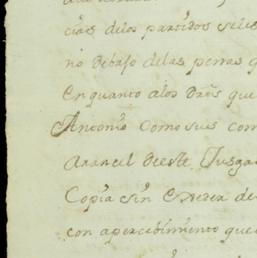 cias delos partidos se les
no debaſo delas penas q
En quanto alos Dros que
Antonio Como sus com
Aranzel deeste Jusga
Copia sin Exceder de
con apercebimiento que